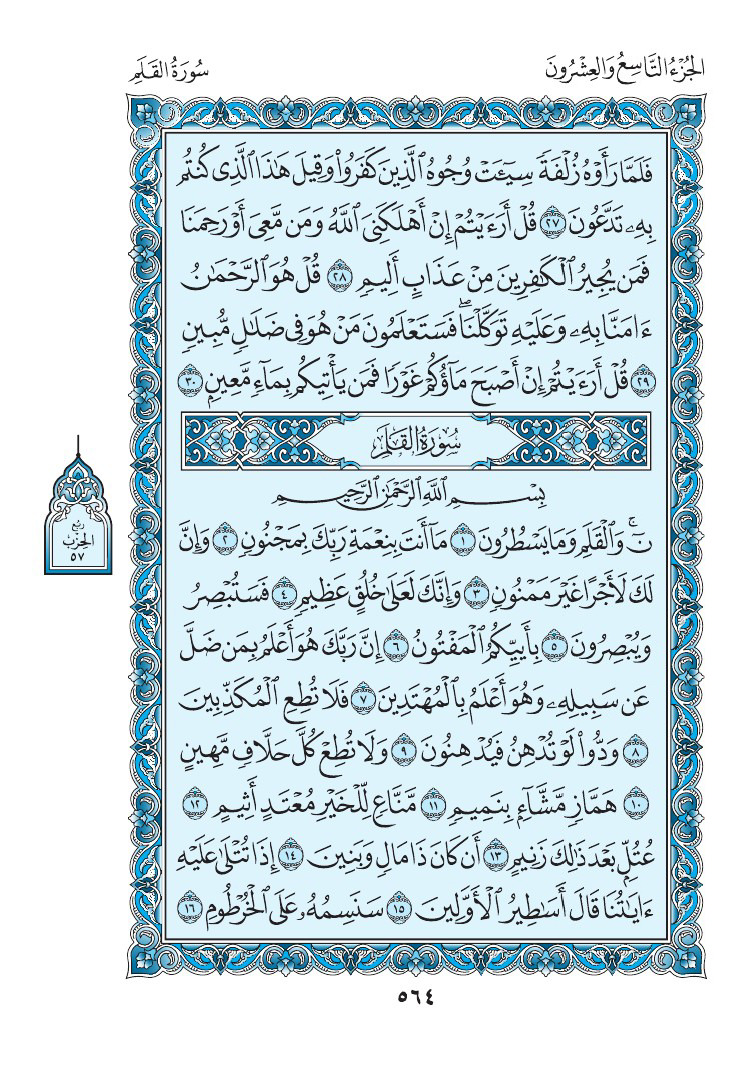 الجُزْءُ التَّاسِعُ وَالعِشْرُونَ
سُورَةُ القَلَمِ
فَلَمَّا رَأَوْهُ زُلْفَةً سِيٓـَٔتْ وُجُوهُ ٱلَّذِينَ كَفَرُوا۟ وَقِيلَ هَٰذَا ٱلَّذِى كُنتُم
بِهِۦ تَدَّعُونَ ٢٧ قُلْ أَرَءَيْتُمْ إِنْ أَهْلَكَنِىَ ٱللَّهُ وَمَن مَّعِىَ أَوْ رَحِمَنَا
فَمَن يُجِيرُ ٱلْكَٰفِرِينَ مِنْ عَذَابٍ أَلِيمٍ ٢٨ قُلْ هُوَ ٱلرَّحْمَٰنُ
ءَامَنَّا بِهِۦ وَعَلَيْهِ تَوَكَّلْنَاۖ فَسَتَعْلَمُونَ مَنْ هُوَ فِى ضَلَٰلٍ مُّبِينٍ
٢٩ قُلْ أَرَءَيْتُمْ إِنْ أَصْبَحَ مَآؤُكُمْ غَوْرًا فَمَن يَأْتِيكُم بِمَآءٍ مَّعِينٍۭ ٣٠
سُورَةُ القَلَمِ
بِسْمِ ٱللَّهِ ٱلرَّحْمَٰنِ ٱلرَّحِيمِ
نٓۚ وَٱلْقَلَمِ وَمَا يَسْطُرُونَ ١ مَآ أَنتَ بِنِعْمَةِ رَبِّكَ بِمَجْنُونٍ ٢ وَإِنَّ
لَكَ لَأَجْرًا غَيْرَ مَمْنُونٍ ٣ وَإِنَّكَ لَعَلَىٰ خُلُقٍ عَظِيمٍ ٤ فَسَتُبْصِرُ
وَيُبْصِرُونَ ٥ بِأَييِّكُمُ ٱلْمَفْتُونُ ٦ إِنَّ رَبَّكَ هُوَ أَعْلَمُ بِمَن ضَلَّ
عَن سَبِيلِهِۦ وَهُوَ أَعْلَمُ بِٱلْمُهْتَدِينَ ٧ فَلَا تُطِعِ ٱلْمُكَذِّبِينَ
٨ وَدُّوا۟ لَوْ تُدْهِنُ فَيُدْهِنُونَ ٩ وَلَا تُطِعْ كُلَّ حَلَّافٍ مَّهِينٍ
١٠ هَمَّازٍ مَّشَّآءٍۭ بِنَمِيمٍ ١١ مَّنَّاعٍ لِّلْخَيْرِ مُعْتَدٍ أَثِيمٍ ١٢
عُتُلٍّۭ بَعْدَ ذَٰلِكَ زَنِيمٍ ١٣ أَن كَانَ ذَا مَالٍ وَبَنِينَ ١٤ إِذَا تُتْلَىٰ عَلَيْهِ
ءَايَٰتُنَا قَالَ أَسَٰطِيرُ ٱلْأَوَّلِينَ ١٥ سَنَسِمُهُۥ عَلَى ٱلْخُرْطُومِ ١٦
ربع
الحزب
٥٧
٥٦٤